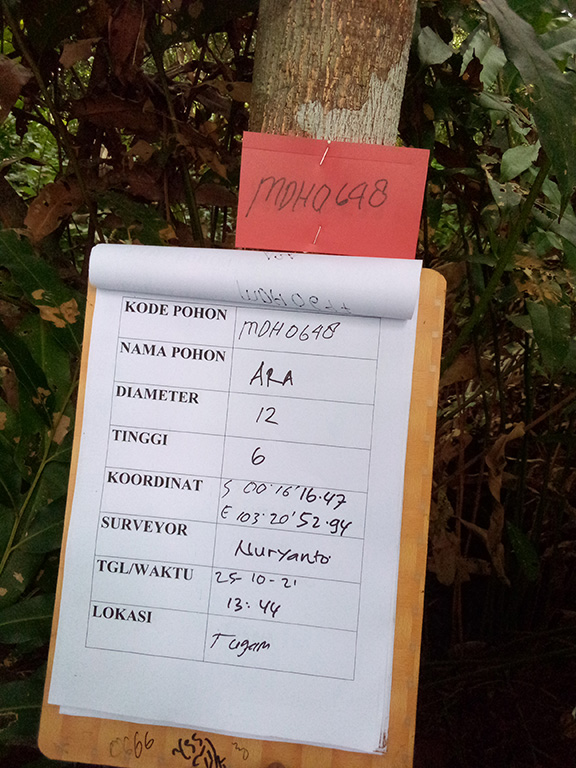 MDH0648
KODE POHON MDH0648
NAMA POHON ARA
DIAMETER 12
TINGGI 6
KOORDINAT S 00°16'16.47
E 103°20'52.94
SURVEYOR Nuryanto
TGL/WAKTU 25-10-21
13:44
LOKASI Tugam